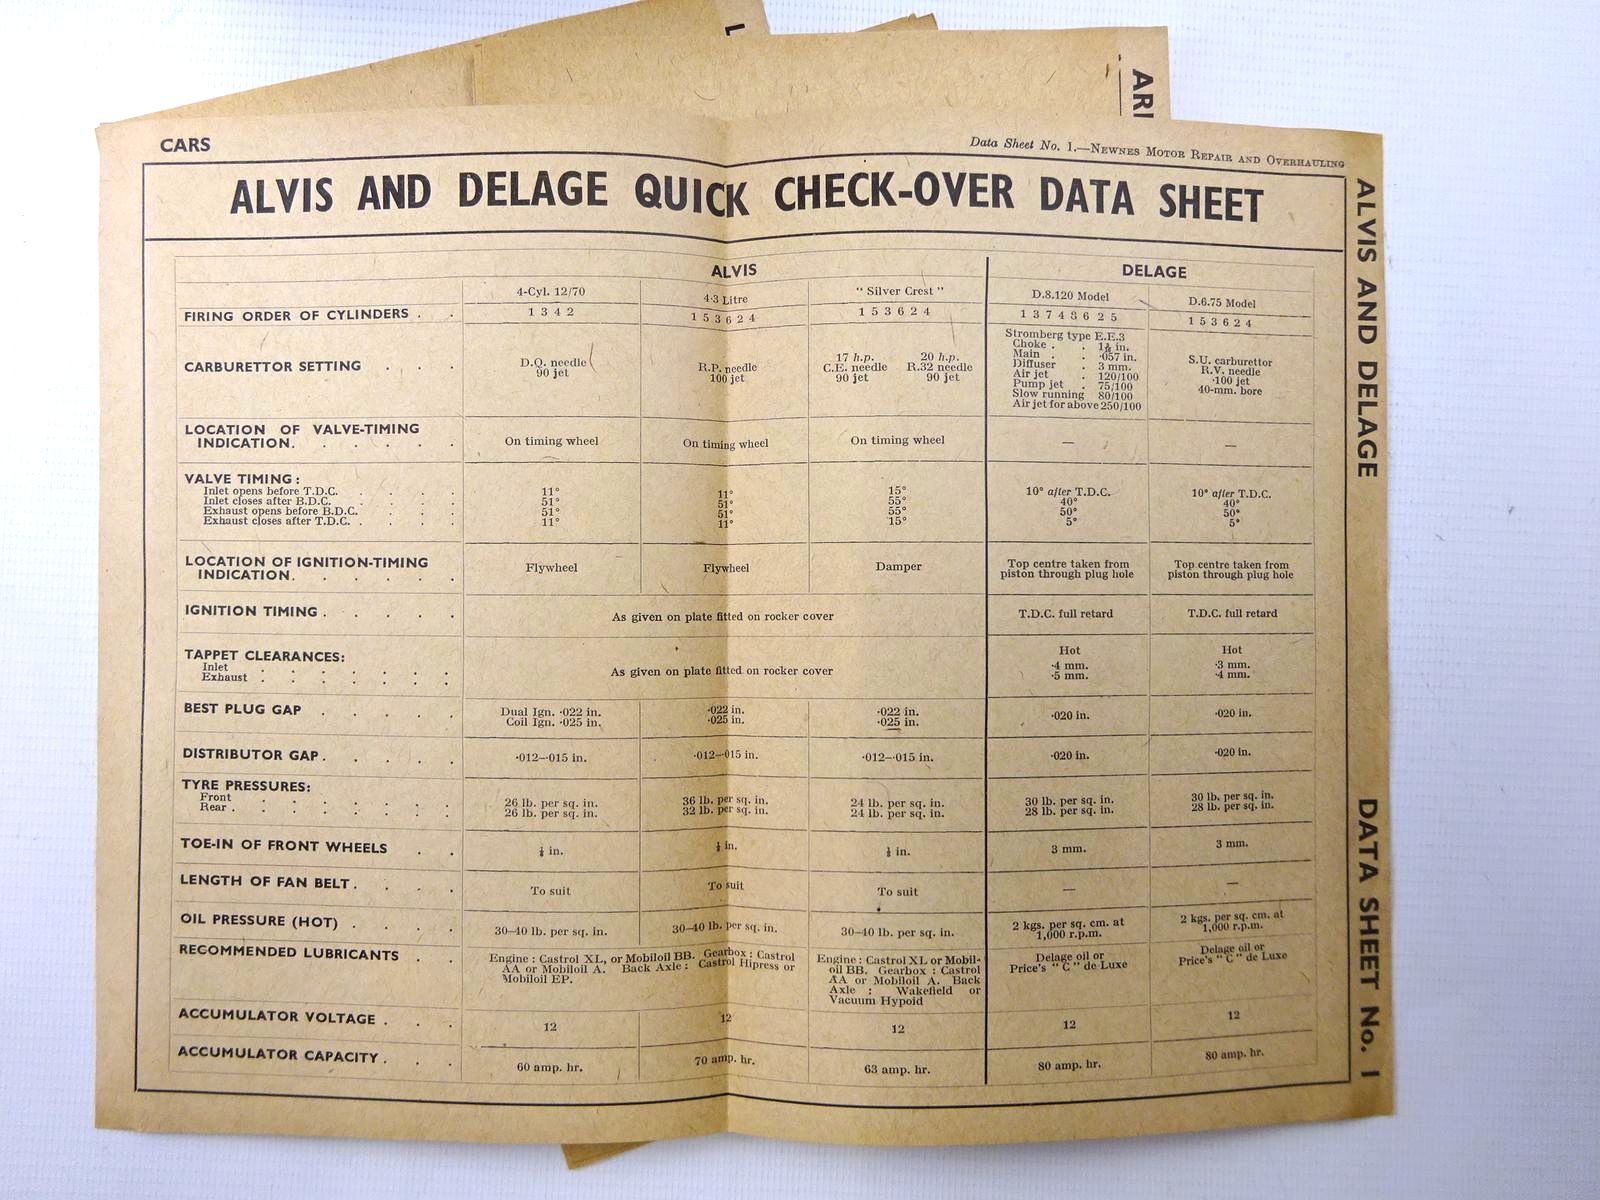 L
ARI
CARS
Data Sheet No. 1.—NEWNES MOTOR REPAIR AND OVERHAULING
ALVIS AND DELAGE QUICK CHECK-OVER DATA SHEET
ALVIS AND DELAGE DATA SHEET No. 1
ALVIS DELAGE
4-Cyl. 12/70 4·3 Litre "Silver Crest" D.8.120 Model D.6.75 Model
FIRING ORDER OF CYLINDERS . . 1 3 4 2 1 5 3 6 2 4 1 5 3 6 2 4 1 3 7 4 8 6 2 5 1 5 3 6 2 4
CARBURETTOR SETTING . . .
D.Q. needle
90 jet
R.P. needle
100 jet
17 h.p. 20 h.p.
C.E. needle R.32 needle
90 jet 90 jet
Stromberg type E.E.3
Choke . . in.
Main . . ·057 in.
Diffuser . 3 mm.
Air jet . 120/100
Pump jet . 75/100
Slow running 80/100
Air jet for above 250/100
S.U. carburettor
R.V. needle
·100 jet
40-mm. bore
LOCATION OF VALVE-TIMING
INDICATION. . . . . . On timing wheel On timing wheel On timing wheel — —
VALVE TIMING:
Inlet opens before T.D.C. . . . . 11° 11° 15° 10° after T.D.C. 10° after T.D.C.
Inlet closes after B.D.C. . . . . 51° 51° 55° 40° 40°
Exhaust opens before B.D.C. . . . . 51° 51° 55° 50° 50°
Exhaust closes after T.D.C. . . . . 11° 11° 15° 5° 5°
LOCATION OF IGNITION-TIMING
INDICATION. . . . . . Flywheel Flywheel Damper
Top centre taken from
piston through plug hole
Top centre taken from
piston through plug hole
IGNITION TIMING . . . . . As given on plate fitted on rocker cover T.D.C. full retard T.D.C. full retard
TAPPET CLEARANCES: Hot Hot
Inlet . . . . . . ·4 mm. ·3 mm.
Exhaust . . . . . . As given on plate fitted on rocker cover ·5 mm. ·4 mm.
BEST PLUG GAP . . . .
Dual Ign. ·022 in. ·022 in. ·022 in. ·020 in. ·020 in.
Coil Ign. ·025 in. ·025 in. ·025 in.
DISTRIBUTOR GAP . . . . . ·012–·015 in. ·012–·015 in. ·012–·015 in. ·020 in. ·020 in.
TYRE PRESSURES:
Front . . . . . . 26 lb. per sq. in. 36 lb. per sq. in. 24 lb. per sq. in. 30 lb. per sq. in. 30 lb. per sq. in.
Rear . . . . . . . 26 lb. per sq. in. 32 lb. per sq. in. 24 lb. per sq. in. 28 lb. per sq. in. 28 lb. per sq. in.
TOE-IN OF FRONT WHEELS . . ⅛ in. ⅛ in. ⅛ in. 3 mm. 3 mm.
LENGTH OF FAN BELT . . . . To suit To suit To suit — —
OIL PRESSURE (HOT) . . . . 30–40 lb. per sq. in. 30–40 lb. per sq. in. 30–40 lb. per sq. in.
2 kgs. per sq. cm. at
1,000 r.p.m.
2 kgs. per sq. cm. at
1,000 r.p.m.
RECOMMENDED LUBRICANTS . .
Engine : Castrol XL, or Mobiloil BB. Gearbox : Castrol
AA or Mobiloil A. Back Axle : Castrol Hipress or
Mobiloil EP.
Engine : Castrol XL or Mobil-
oil BB. Gearbox : Castrol
AA or Mobiloil A. Back
Axle : Wakefield or
Vacuum Hypoid
Delage oil or
Price's "C" de Luxe
Delage oil or
Price's "C" de Luxe
ACCUMULATOR VOLTAGE . . . 12 12 12 12 12
ACCUMULATOR CAPACITY . . . 60 amp. hr. 70 amp. hr. 63 amp. hr. 80 amp. hr. 80 amp. hr.